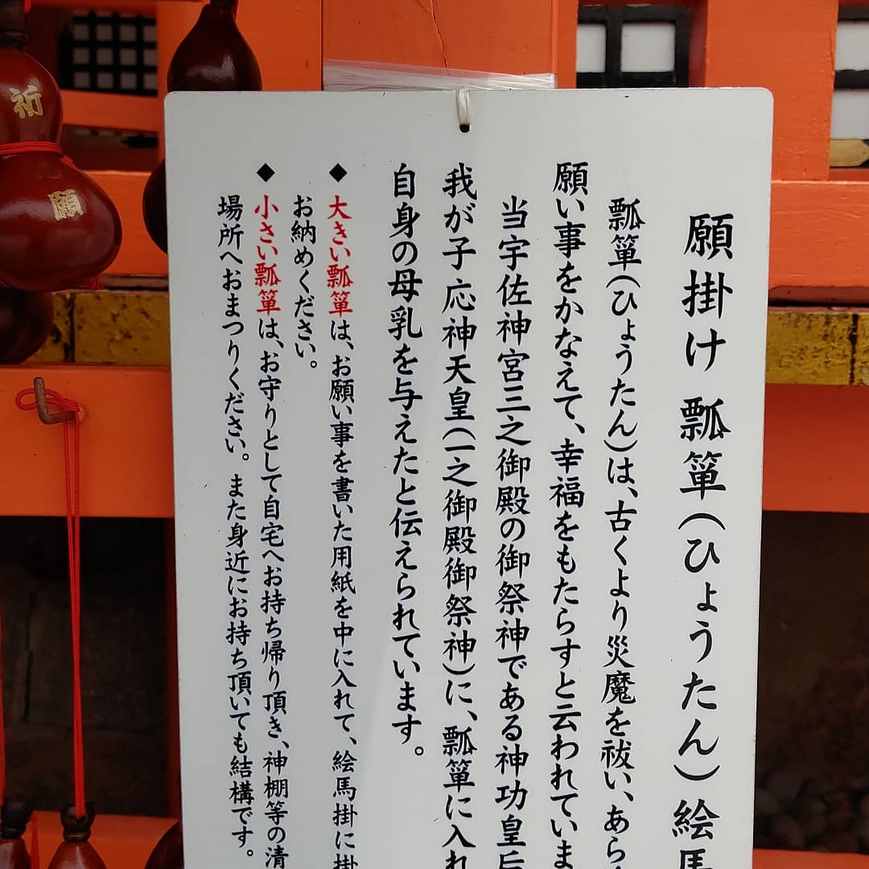 願掛け 瓢箪(ひょうたん)絵馬
瓢箪(ひょうたん)は、古くより災魔を祓い、あら
願い事をかなえて、幸福をもたらすと云われていま
当宇佐神宮三之御殿の御祭神である神功皇后
我が子応神天皇(一之御殿御祭神)に、瓢箪に入れ
自身の母乳を与えたと伝えられています。
◆大きい瓢箪は、お願い事を書いた用紙を中に入れて、絵馬掛に掛
お納めください。
◆小さい瓢箪は、お守りとして自宅へお持ち帰り頂き、神棚等の清
場所へおまつりください。また身近にお持ち頂いても結構です。
祈
願